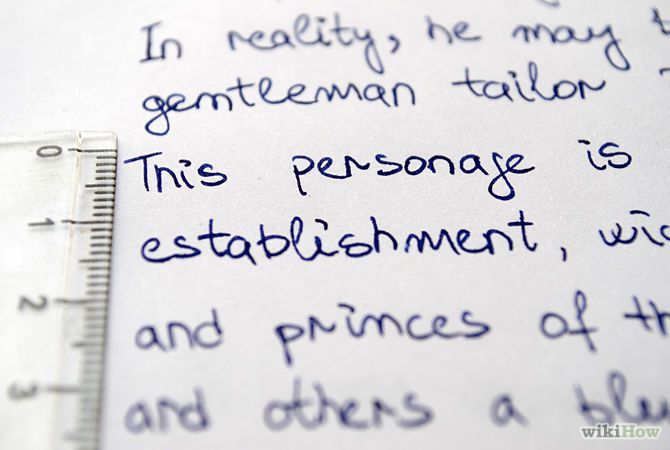 In reality, he may
gentleman tailor
This personage is
establishment,
and princes of
and others a
0
1
2
3
wikiHow